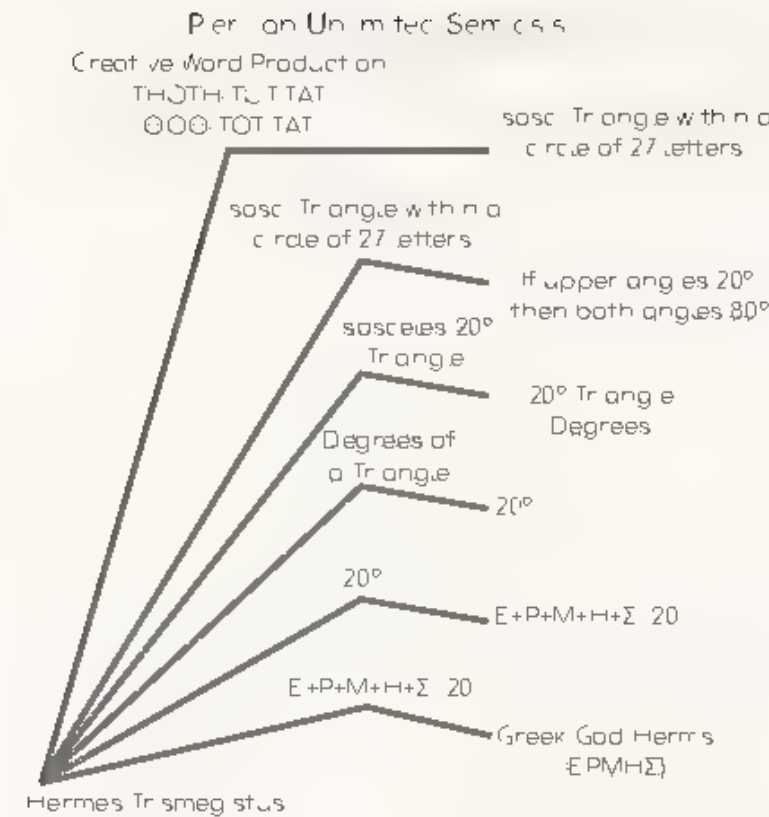 Peircian Unlimited Semiosis
Creative Word Production
THOTH-TOT TAT
ΘOΘ-TOT TAT
Isosc. Triangle within a
circle of 27 letters
Isosc. Triangle within a
circle of 27 letters
If upper angles 20°
then both angles 80°
Isosceles 20°
Triangle
20° Triangle
Degrees
Degrees of
a Triangle
20°
20°
E+P+M+H+Σ 20
E+P+M+H+Σ 20
Greek God Hermis
(EPMHΣ)
Hermes Trismegistus